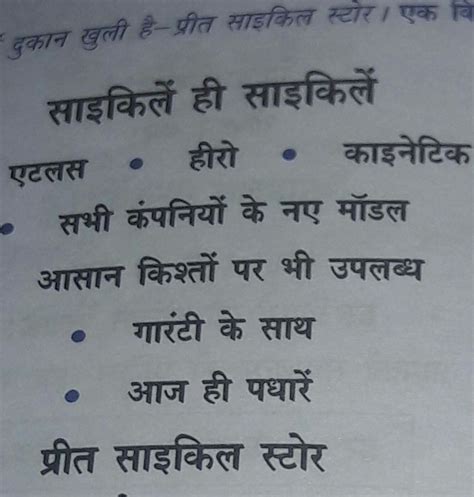 दुकान खुली है–प्रीत साइकिल स्टोर। एक
साइकिलें ही साइकिलें
एटलस • हीरो • काइनेटिक
• सभी कंपनियों के नए मॉडल
आसान किश्तों पर भी उपलब्ध
• गारंटी के साथ
• आज ही पधारें
प्रीत साइकिल स्टोर